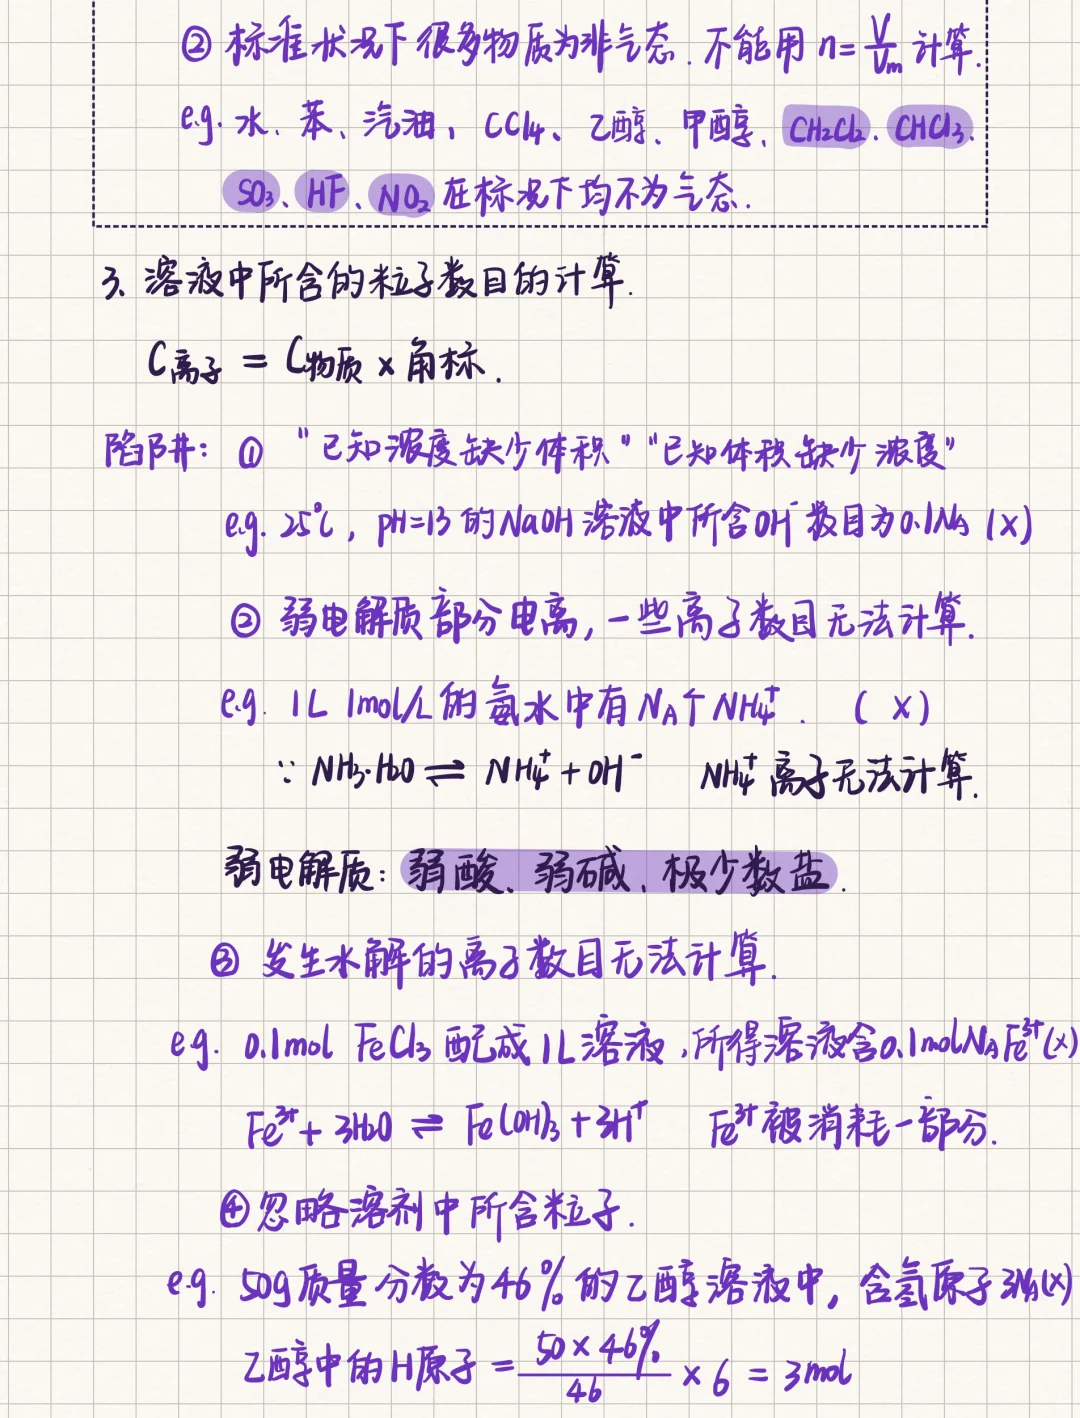 ② 标准状况下很多物质为非气态.不能用 n=V/Vm 计算.
e.g. 水、苯、汽油、CCl4、乙醇、甲醇、CH2Cl2、CHCl3、
SO3、HF、NO2 在标况下均不为气态.
3. 溶液中所含的粒子数目的计算.
C离子 = C物质 × 角标.
陷阱: ① "已知浓度缺少体积" "已知体积缺少浓度"
e.g. 25℃, pH=13 的NaOH 溶液中所含OH⁻数目为0.1NA (×)
② 弱电解质部分电离,一些离子数目无法计算.
e.g. 1L 1mol/L 的氨水中有NA个NH4⁺. (×)
∵ NH3·H2O ⇌ NH4⁺ + OH⁻ NH4⁺离子无法计算.
弱电解质: 弱酸、弱碱、极少数盐.
③ 发生水解的离子数目无法计算.
e.g. 0.1mol FeCl3 配成1L溶液,所得溶液含0.1molNA Fe³⁺(×)
Fe³⁺ + 3H2O ⇌ Fe(OH)3 + 3H⁺ Fe³⁺被消耗一部分.
④忽略溶剂中所含粒子.
e.g. 50g质量分数为46%的乙醇溶液中,含氢原子3NA(×)
乙醇中的H原子 = 50×46%/46 × 6 = 3mol